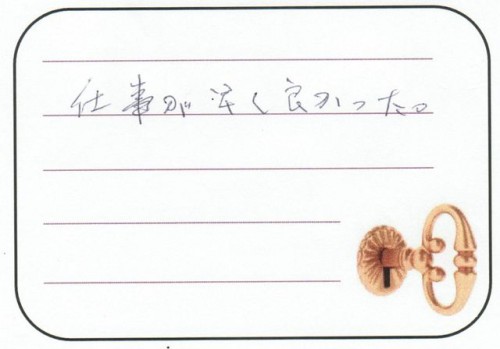 仕事が早く良かった。